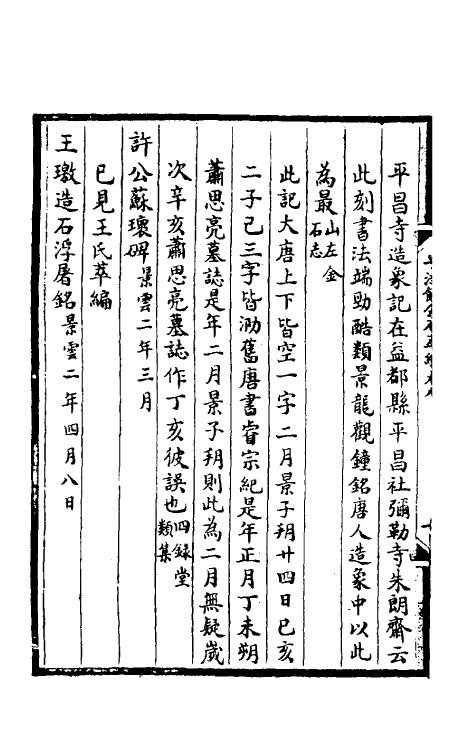 平昌寺造象記在益都縣平昌社彌勒寺朱朗齋云
此刻書法端勁酷類景龍觀鐘銘唐人造象中以此
為最山左金石志
此記大唐上下皆空一字二月景子朔廿四日己亥
二子己三字皆泐舊唐書睿宗紀是年正月丁未朔
蕭思亮墓誌是年二月景子朔則此為二月無疑歲
次辛亥蕭思亮墓誌作丁亥彼誤也四錄堂類集
許公蘇瓌碑景雲二年三月
已見王氏萃編
王璬造石浮屠銘景雲二年四月八日